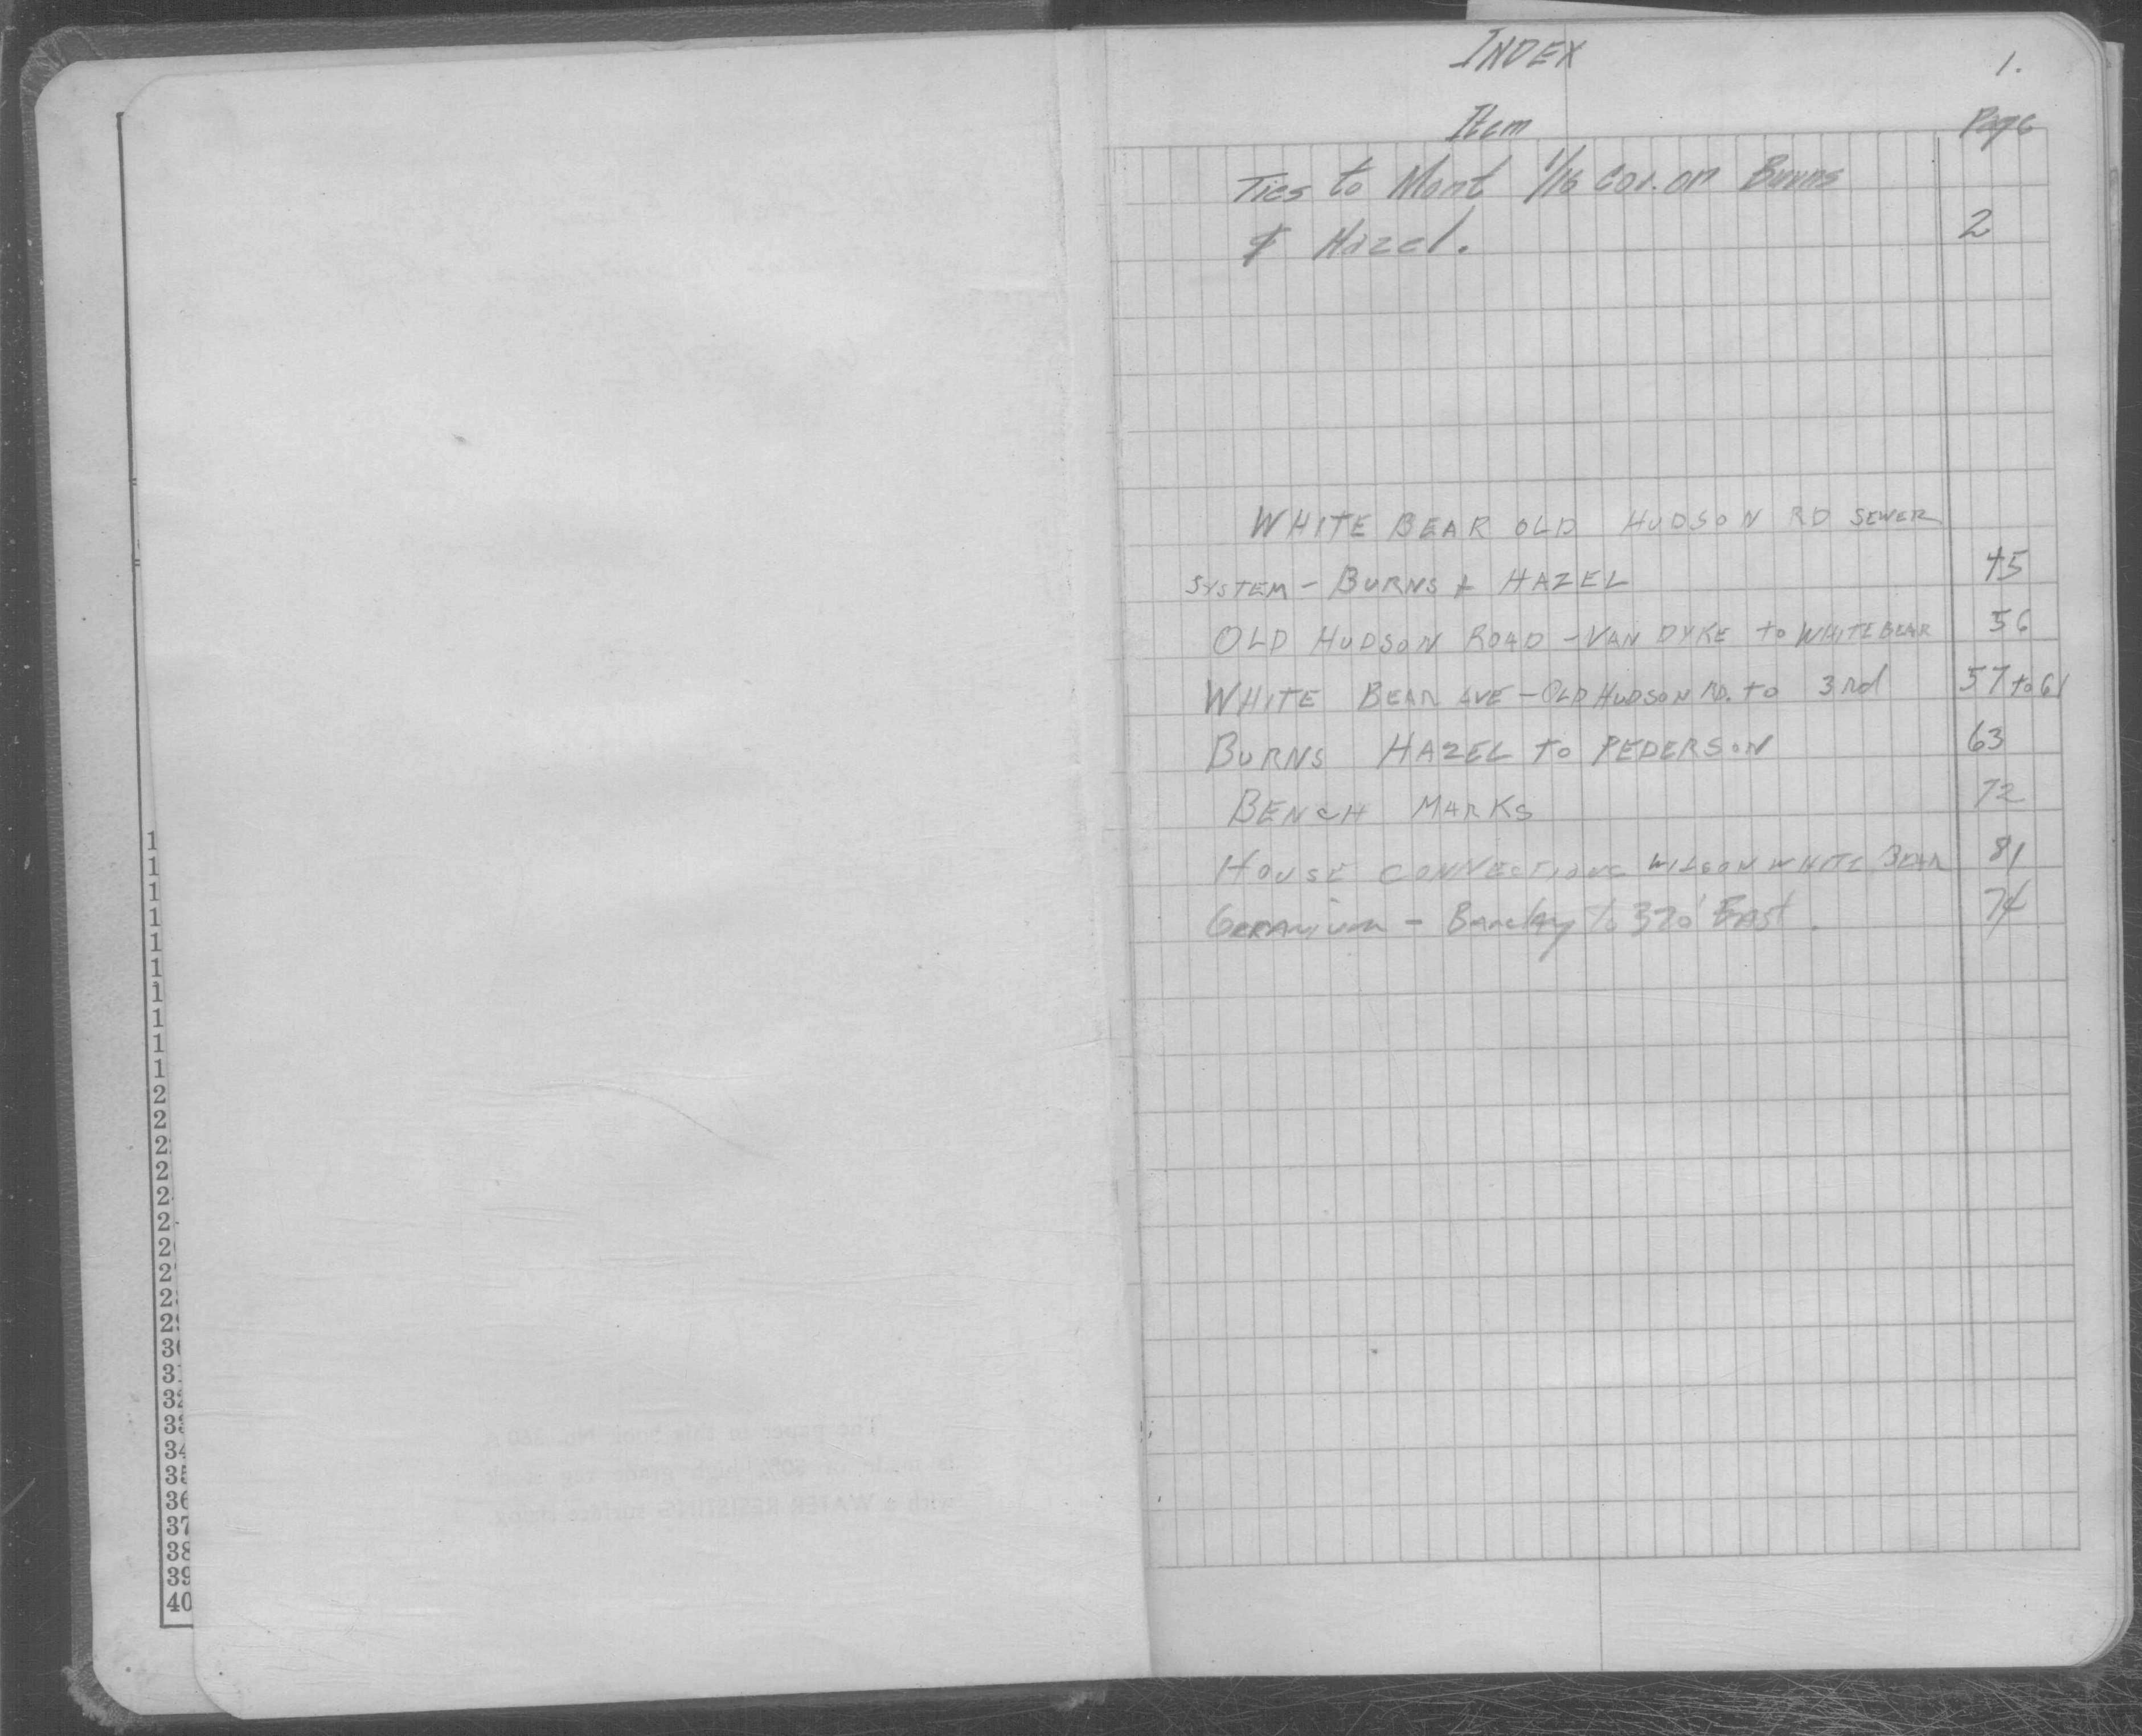 1
1
1
1
1
1
1
1
1
1
2
2
2
2
2
2
2
2
2
29
30
31
32
33
34
35
36
37
38
39
40
INDEX
1.
Item Page
Ties to Mont 1/16 Cor. on Burns
& Hazel. 2
WHITE BEAR OLD HUDSON RD SEWER
SYSTEM - BURNS & HAZEL 45
OLD HUDSON ROAD - VAN DYKE to WHITE BEAR 56
WHITE BEAR AVE - OLD HUDSON RD. to 3rd 57 to 61
BURNS HAZEL TO PEDERSON 63
BENCH MARKS 72
HOUSE CONNECTIONS WILSON WHITE BEAR 81
Geranium - Barclay to 320' East. 74
The paper in this book No.
is made of 50% high grade rag stock
with a WATER RESISTING surface sizing.